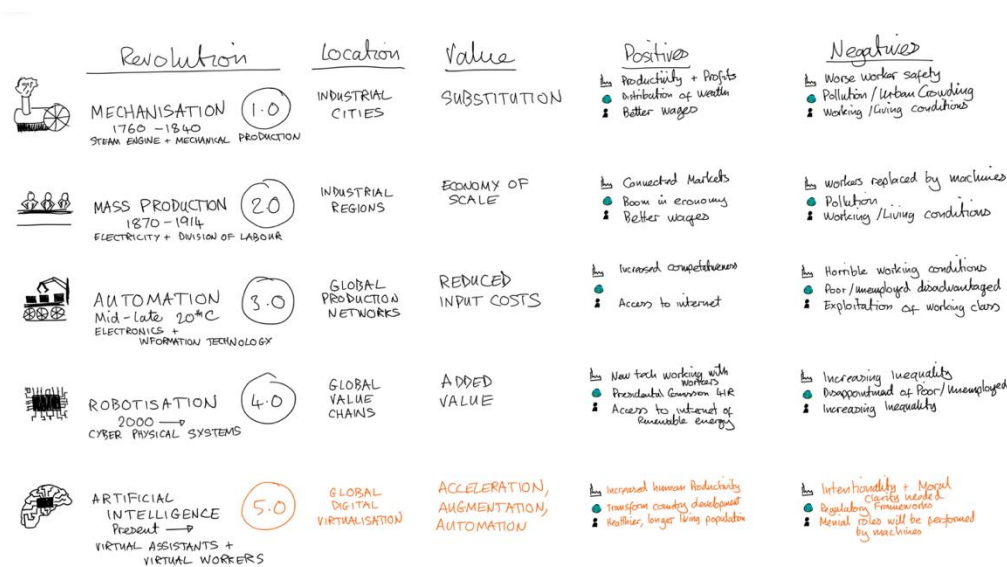 Revolution
Location
Value
Positives
Negatives
MECHANISATION
1760 - 1840
STEAM ENGINE + MECHANICAL PRODUCTION
1.0
INDUSTRIAL
CITIES
SUBSTITUTION
Productivity + Profits
Distribution of wealth
Better wages
Worse worker safety
Pollution / Urban Crowding
Working / Living conditions
MASS PRODUCTION
1870 - 1914
ELECTRICITY + DIVISION OF LABOUR
2.0
INDUSTRIAL
REGIONS
ECONOMY OF
SCALE
Connected Markets
Boom in economy
Better wages
Workers replaced by machines
Pollution
Working / Living conditions
AUTOMATION
Mid-late 20thC
ELECTRONICS +
INFORMATION TECHNOLOGY
3.0
GLOBAL
PRODUCTION
NETWORKS
REDUCED
INPUT COSTS
Increased competitiveness
Access to internet
Horrible working conditions
Poor/unemployed disadvantaged
Exploitation of working class
ROBOTISATION
2000 →
CYBER PHYSICAL SYSTEMS
4.0
GLOBAL
VALUE
CHAINS
ADDED
VALUE
New tech working with
workers
4IR
Access to internet of
Renewable energy
Increasing Inequality
of Poor/Unemployed
Increasing Inequality
ARTIFICIAL
INTELLIGENCE
Present →
VIRTUAL ASSISTANTS +
VIRTUAL WORKERS
5.0
GLOBAL
DIGITAL
VIRTUALISATION
ACCELERATION,
AUGMENTATION,
AUTOMATION
Increased human Productivity
Transform country development
Healthier, longer living population
Intentionality + Moral
clarity needed
Regulatory Frameworks
Menial roles will be performed
by machines